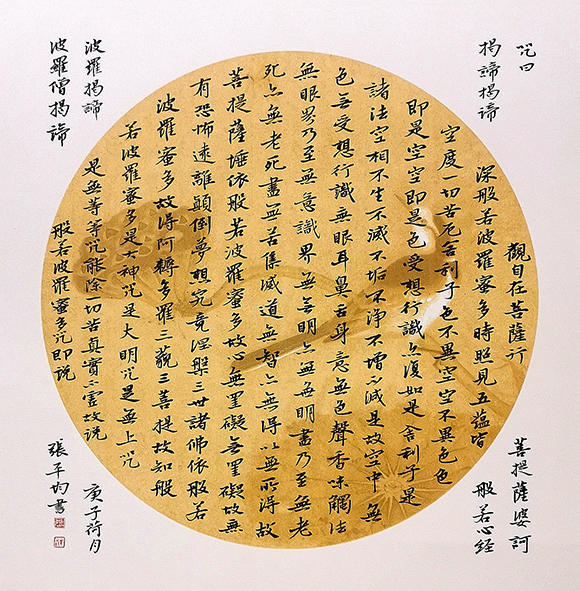 觀自在菩薩行
深般若波羅蜜多時照見五蘊皆
空度一切苦厄舍利子色不異空空不異色色
即是空空即是色受想行識亦復如是舍利子是
諸法空相不生不滅不垢不淨不增不減是故空中無
色無受想行識無眼耳鼻舌身意無色聲香味觸法
無眼界乃至無意識界無無明亦無無明盡乃至無老
死亦無老死盡無苦集滅道無智亦無得以無所得故
菩提薩埵依般若波羅蜜多故心無罣礙無罣礙故無
有恐怖遠離顛倒夢想究竟涅槃三世諸佛依般若
波羅蜜多故得阿耨多羅三藐三菩提故知般
若波羅蜜多是大神咒是大明咒是無上咒
是無等等咒能除一切苦真實不虛故說
般若波羅蜜多咒即說
咒曰
揭諦揭諦
波羅揭諦
波羅僧揭諦
菩提薩婆訶
般若心經
庚子荷月
張平均書